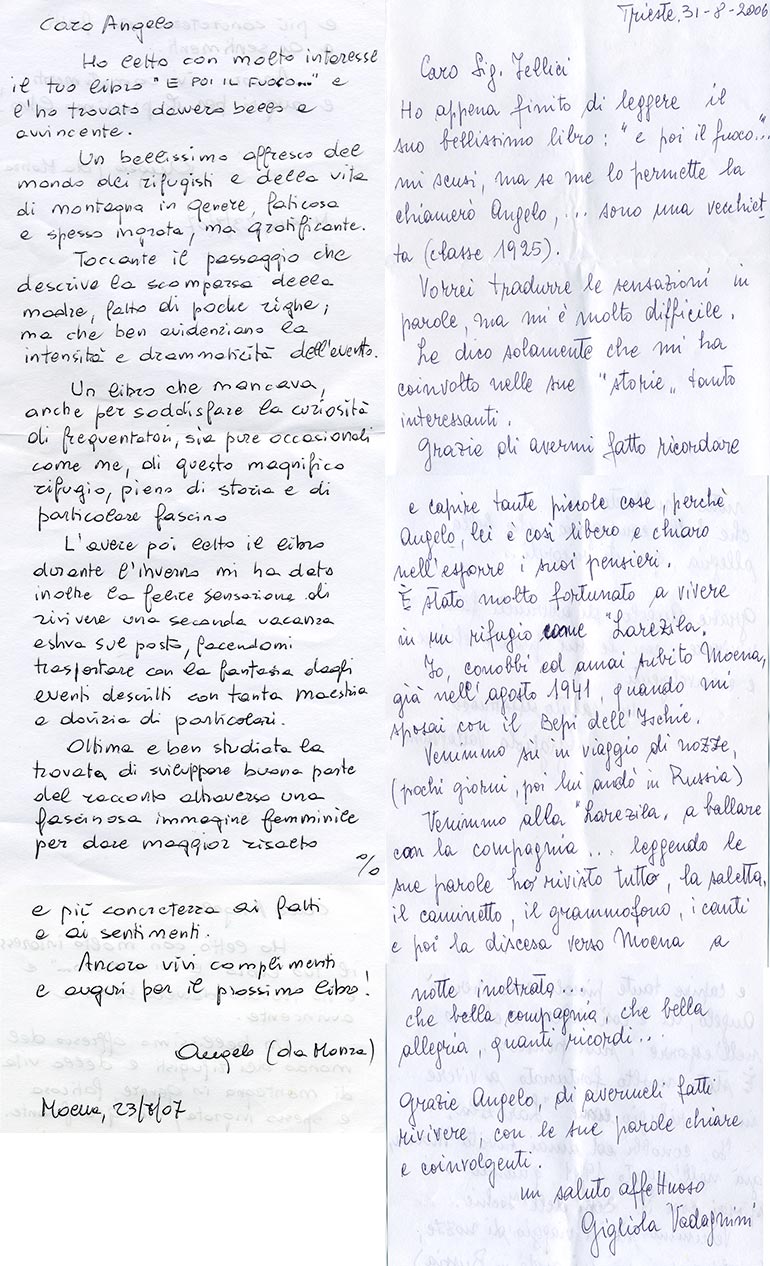 Caro Angelo
Ho letto con molto interesse
il tuo libro "E POI IL FUOCO..." e
l'ho trovato davvero bello e
avvincente.
Un bellissimo affresco del
mondo dei rifugisti e della vita
di montagna in genere, faticosa
e spesso ingrata, ma gratificante.
Toccante il passaggio che
descrive la scomparsa della
madre, fatto di poche righe,
ma che ben evidenziano la
intensità e drammaticità dell'evento.
Un libro che mancava,
anche per soddisfare la curiosità
di frequentatori, sia pure occasionali
come me, di questo magnifico
rifugio, pieno di storia e di
particolare fascino
L'avere poi letto il libro
durante l'inverno mi ha dato
inoltre la felice sensazione di
rivivere una seconda vacanza
estiva sul posto, facendomi
trasportare con la fantasia dagli
eventi descritti con tanta maestria
e dovizia di particolari.
Ottima e ben studiata la
trovata di sviluppare buona parte
del racconto attraverso una
fascinosa immagine femminile
per dare maggior risalto
%
e più concretezza ai fatti
e ai sentimenti.
Ancora vivi complimenti
e auguri per il prossimo libro!
Angelo (da Monza)
Moena, 23/8/07
Trieste, 31-8-2006
Caro Sig. Jellici
Ho appena finito di leggere il
suo bellissimo libro: "e poi il fuoco..."
mi scusi, ma se me lo permette la
chiamerò Angelo,... sono una vecchiet
ta (classe 1925).
Vorrei tradurre le sensazioni in
parole, ma mi è molto difficile.
Le dico solamente che mi ha
coinvolto nelle sue "storie" tanto
interessanti.
Grazie di avermi fatto ricordare
e capire tante piccole cose, perchè
Angelo, lei è così libero e chiaro
nell'esporre i suoi pensieri.
È stato molto fortunato a vivere
in un rifugio come "Larezila.
Io, conobbi ed amai subito Moena,
già nell'agosto 1941, quando mi
sposai con il Bepi dell'Ischie.
Venimmo su in viaggio di nozze,
(pochi giorni, poi lui andò in Russia)
Venimmo alla "Larezila. a ballare
con la compagnia... leggendo le
sue parole ho rivisto tutto, la saletta,
il caminetto, il grammofono, i canti
e poi la discesa verso Moena a
notte inoltrata...
che bella compagnia, che bella
allegria, quanti ricordi...
Grazie Angelo, di avermeli fatti
rivivere, con le sue parole chiare
e coinvolgenti.
un saluto affettuoso
Gigliola Vadagnini